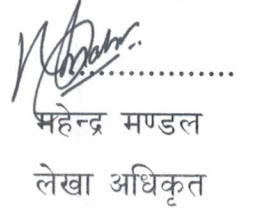 महेन्द्र मण्डल
लेखा अधिकृत